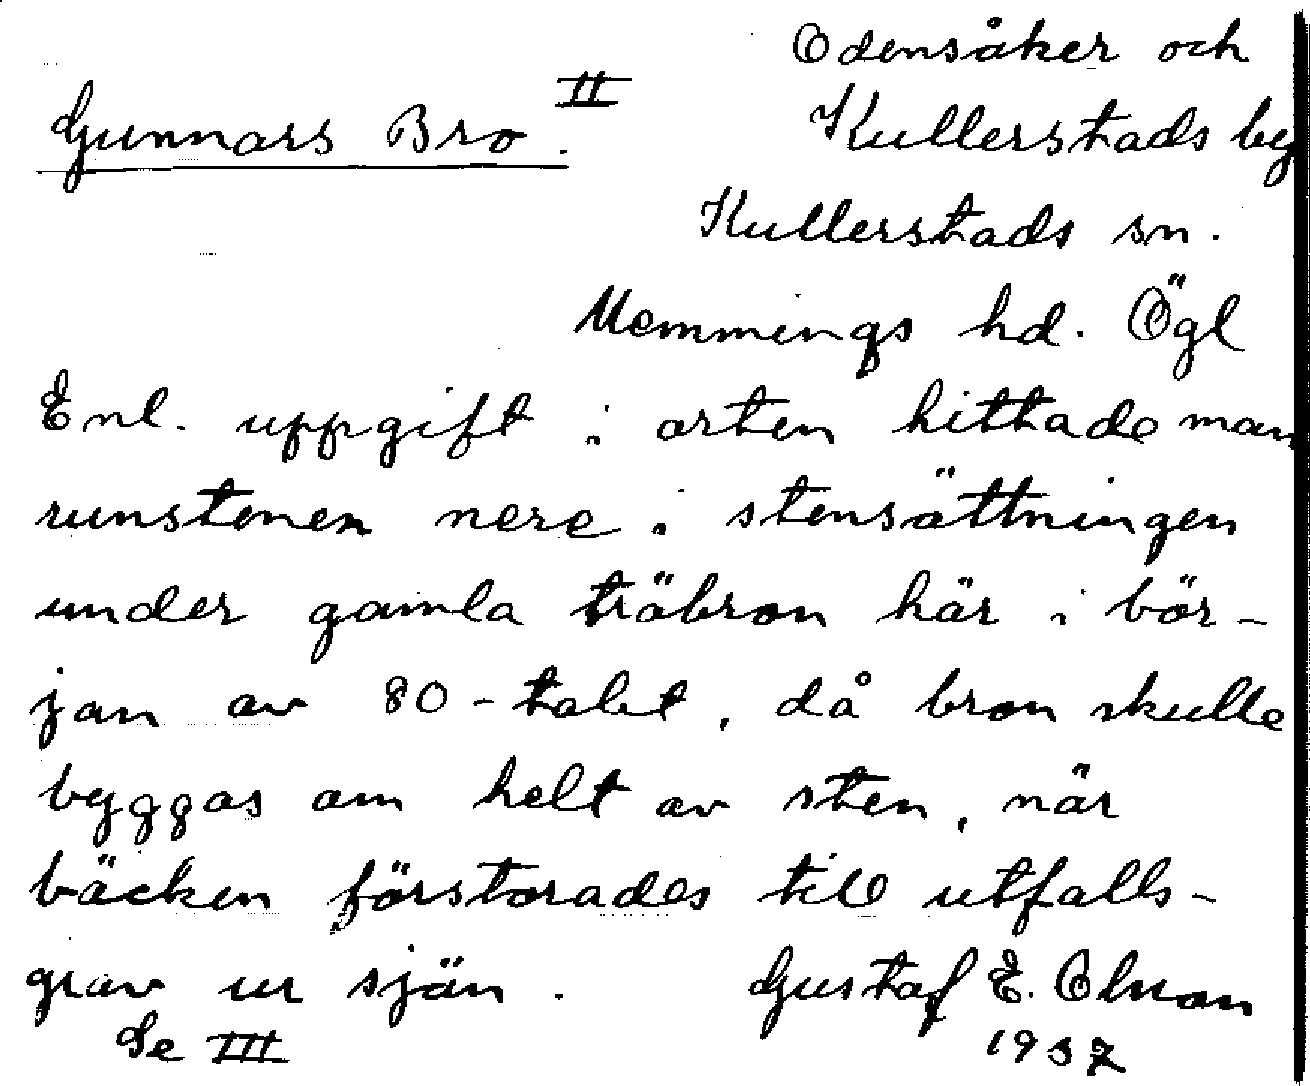 Odensåker och
Gunnars Bro. II
Kullerstads by
Kullerstads sn.
Memmings hd. Ögl
Enl. uppgift i orten hittade man
runstenen nere i stensättningen
under gamla träbron här i bör-
jan av 80-talet, då bron skulle
byggas om helt av sten, när
bäcken förstorades till utfalls-
grav ur sjön. Gustaf E.
Se III